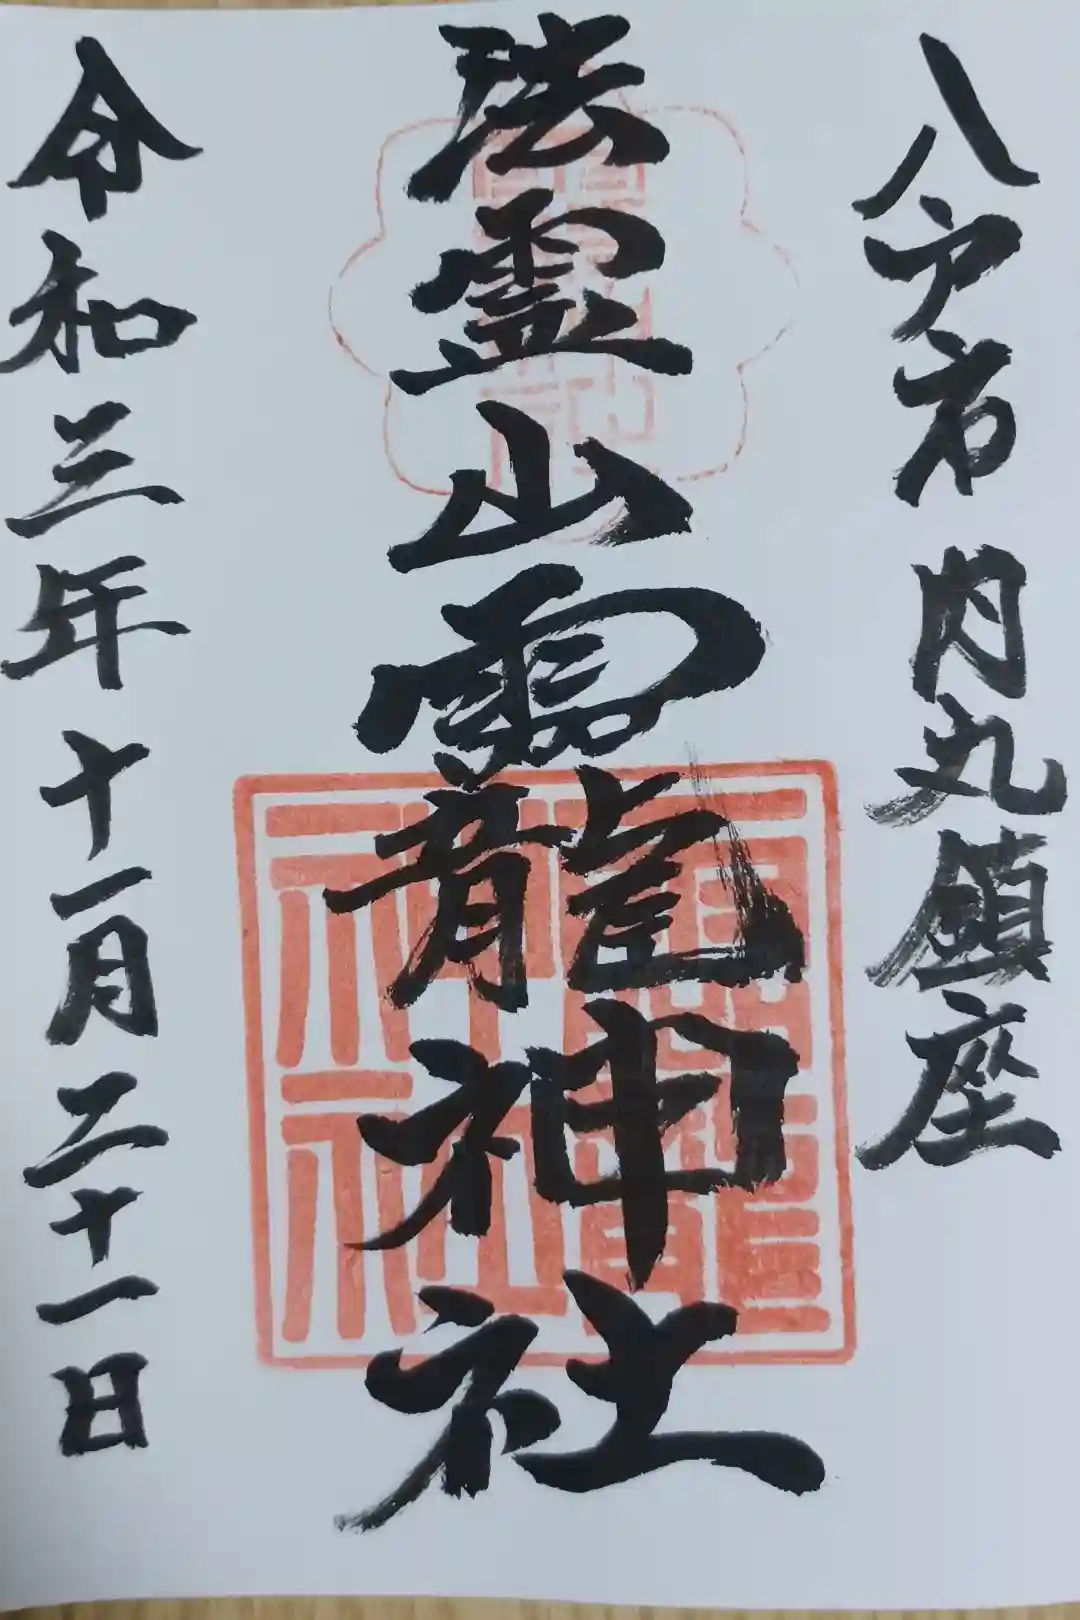 八戸市 内丸鎮座
法霊山龗神社
令和三年十一月二十一日